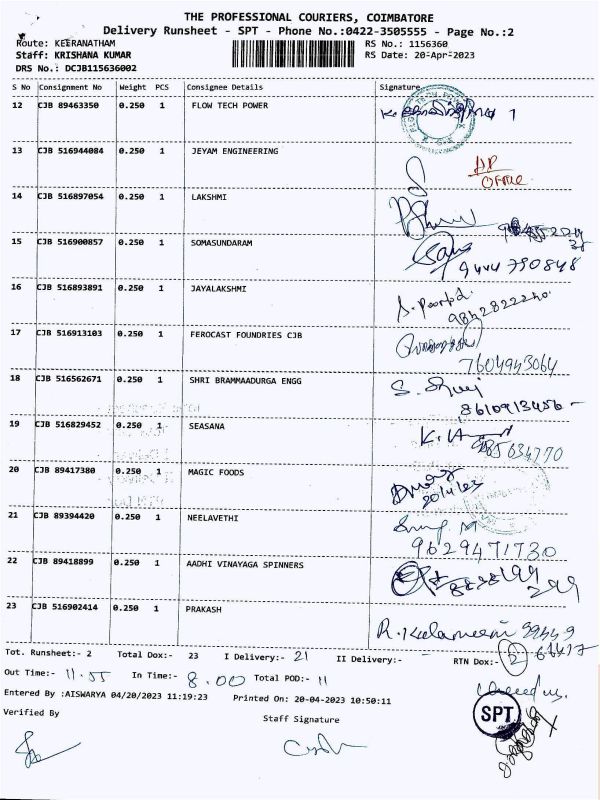 THE PROFESSIONAL COURIERS, COIMBATORE
Delivery Runsheet - SPT - Phone No.:0422-3505555 - Page No.:2
Route: KEERANATHAM RS No.: 1156360
Staff: KRISHANA KUMAR RS Date: 20-Apr-2023
DRS No.: DCJB115636002
S No Consignment No Weight PCS Consignee Details Signature
12 CJB 89463350 0.250 1 FLOW TECH POWER
13 CJB 516944084 0.250 1 JEYAM ENGINEERING
OFFICE
14 CJB 516897054 0.250 1 LAKSHMI
15 CJB 516900857 0.250 1 SOMASUNDARAM
9444 790848
16 CJB 516893891 0.250 1 JAYALAKSHMI
9842822240
17 CJB 516913103 0.250 1 FEROCAST FOUNDRIES CJB
7604943064
18 CJB 516562671 0.250 1 SHRI BRAMMAADURGA ENGG
8610913456
19 CJB 516829452 0.250 1 SEASANA
20 CJB 89417380 0.250 1 MAGIC FOODS
20/4/23
21 CJB 89394420 0.250 1 NEELAVETHI
9629471730
22 CJB 89418899 0.250 1 AADHI VINAYAGA SPINNERS
23 CJB 516902414 0.250 1 PRAKASH
Tot. Runsheet:- 2 Total Dox:- 23 I Delivery:- 21 II Delivery:- RTN Dox:- 2
Out Time:- 11.55 In Time:- 8.00 Total POD:- 11
Entered By :AISWARYA 04/20/2023 11:19:23 Printed On: 20-04-2023 10:50:11
Verified By Staff Signature
SPT